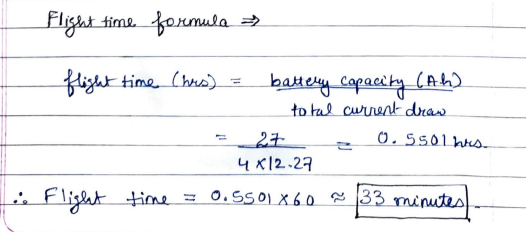 Flight time formula ⇒
flight time (hrs) = battery capacity (Ah)
total current draw
= 27 = 0.5501 hrs.
4 x 12.27
∴ Flight time = 0.5501 x 60 ≈ 33 minutes.